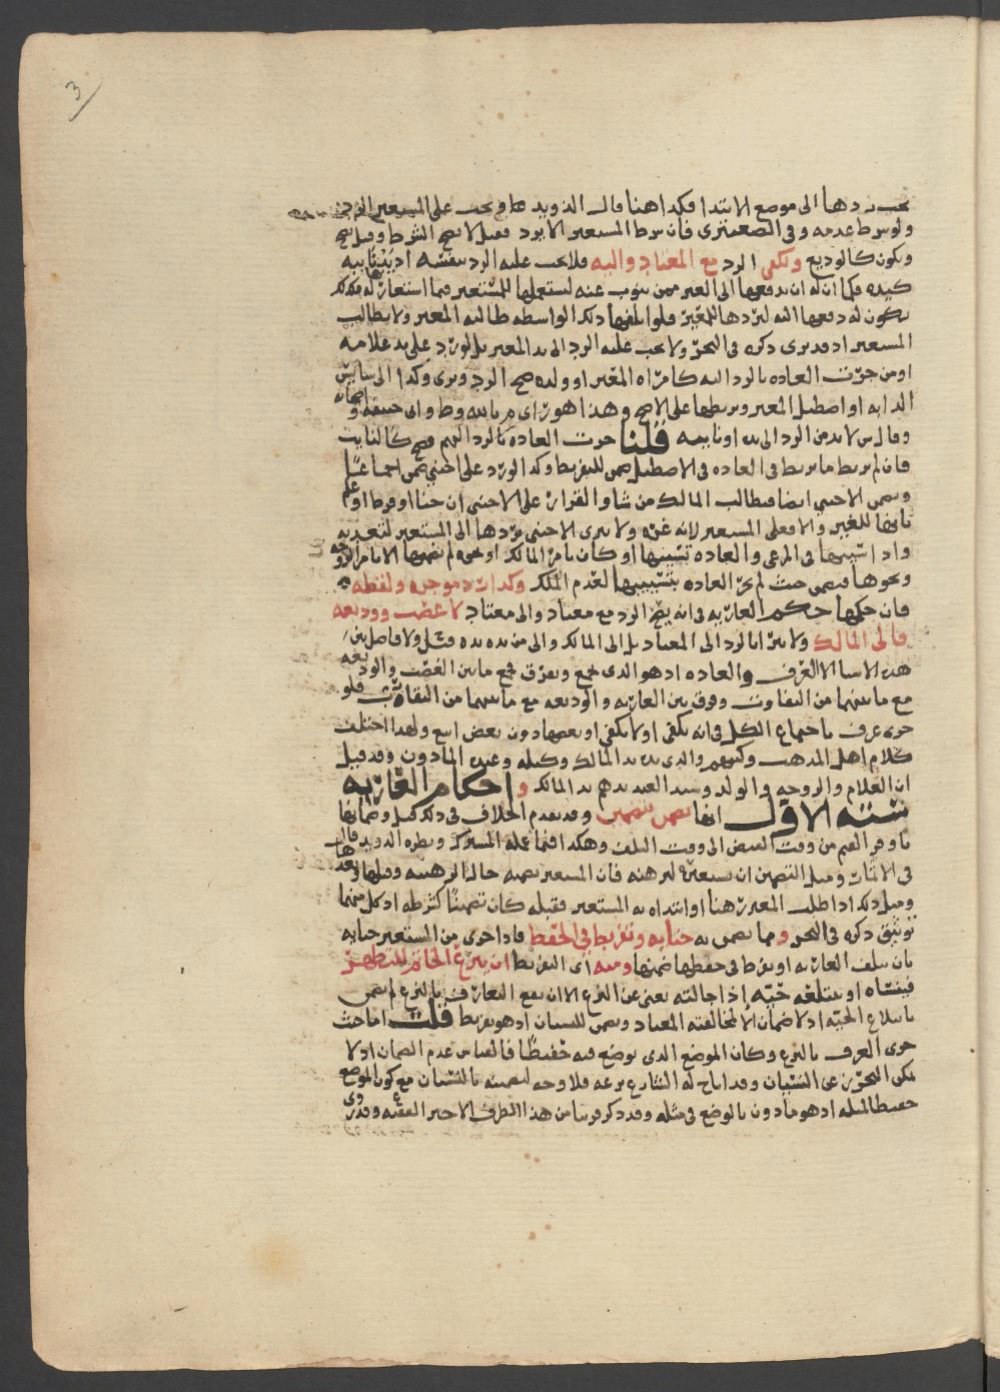 3
يجب ردها الى موضع الابتدا فكذا هنا قال الدويد ها ويجب على المستعير الرد
ولو شرط عدمه وفي الصعيتري فان شرط المستعير الا يرد فقيل لا يصح الشرط وقيل يصح
ويكون كالوديع ويكفي الرد مع المعتاد واليه فلا يجب عليه الرد بنفسه اذ يد نايبه
كيده فكما ان له ان يدفعها الى الغير ممن ينوب عنه ليستعملها للمستعير فيما استعار له فكذلك
يكون له دفعها اليه ليردها للمعير فلو اتلفها ذلك الواسطه طالبه المعير ولا يطالب
المستعير اذ قد برى ذكره في البحر ولا يجب عليه الرد الى يد المعير بل لو رد على يد غلامه
او من جرت العاده بالرد اليه كامراه المعير او ولده صح الرد وبرى وكذا الى سايس
الدابه او اصطبل المعير وبربطها على الاصح وهذا هو راي م بالله وط واى حنيفه واصحابه
وقال ش لا بد من الرد الى يده او نايبه قلنا جرت العاده بالرد اليهم فصح كالنايب
فان لم يربط ما يربط في العاده في الاصطبل ضمن للتفريط وكذا لو رد على اجنبي ضمن اجماعا
ويضمن الاجنبي ايضا فيطالب المالك من شاو القرار على الاجنبي ان جنا او فرط او علم
بانها للغير والا فعلى المستعير لانه غره ولا يبرى الاجنبي بردها الى المستعير لتعديه
واذا سيبها في المرعى والعاده تسييبها او كان بامر المالك او نحوه لم يضمنها الا بامر الزوجه
ونحوها فيضمن حيث لم تجر العاده بتسييبها لعدم الملك وكذا رد موجره ولقطه
فان حكمها حكم العاريه في انه يصح الرد مع معتاد والى معتاد لا غصب ووديعه
فالى المالك ولا يبرا بالرد الى المعتاد بل الى المالك والى من يده يده قيل ولا فاصل بين
هذه الاشيا الا العرف والعاده اذ هو الذي جمع وفرق فجمع ما بين الغصب والوديعه
مع ما بينهما من التفاوت وفرق بين العاريه والوديعه مع ما بينهما من التقارب فلو
جرى عرف باجتماع الكل في انه يكفي او لا يكفي او بعضها دون بعض اتبع ولهذا اختلف
كلام اهل المذهب وكثيرهم والذي يده يد المالك وكيله وعبده الماذون وقد قيل
ان الغلام والزوجه والولد وسيد العبد يدهم يد المالك واحكام العاريه
سته الاول انها تضمن بتضمين وقد تقدم الخلاف في ذلك كميل وضمانها
باوفر القيم من وقت القبض الى وقت التلف وهكذا فيما عمله المشترك ونظره الدويد قال
في الاثمار ومثل التضمين ان يستعيره ليرهنه فان المستعير يضمنه حال الرهنيه وقبلها وبعدها
ومثل ذلك اذا طلب المعير رهنا او ابتداه به المستعير فقبله كان تضمينا كشرطه اذ كل منهما
توثيق ذكره في البحر ومما يضمن به جنايه وتفريط في الحفظ فاذا جرى من المستعير جنايه
بان يتلف العاريه او يفرط في حفظها ضمنها ومنه اى التفريط ان ينزع الخاتم للتطهر
فينساه او يبتلعه حيه اذا جالته يعني عن النزع الا ان يقع التعارف بالنزع لم يضمن
بابتلاع الحيه اذ لا ضمان الا لمخالفته المعتاد ويضمن للنسيان اذ هو تفريط قلت اما حيث
جرى العرف بالنزع وكان الموضع الذي يوضع فيه حفيظا فالقياس عدم الضمان اذ لا
يمكن التحرز عن النسيان وقد اباح له الشارع نزعه فلا وجه لتضمينه بالنسيان مع كون الموضع
حفيظا لمثله اذ هو ماذون بالوضع في مثله وقد ذكر قريبا من هذا الطرف الاخير الفقيه وقد روى